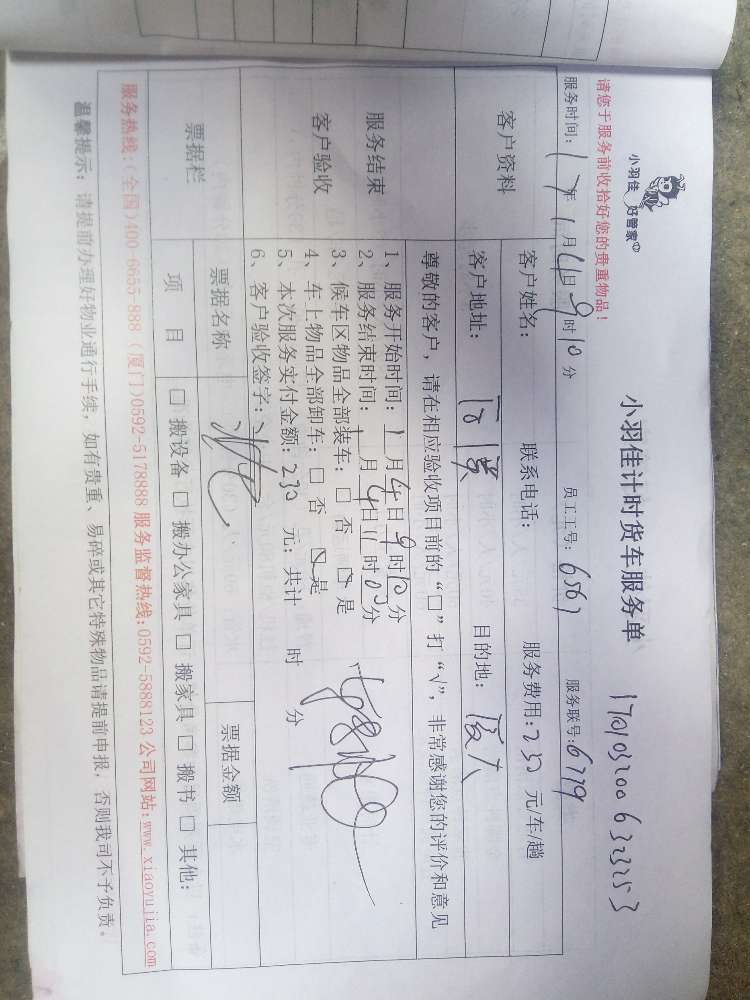 小羽佳 好管家
小羽佳计时货车服务单
请您于服务前收拾好您的贵重物品！
服务时间：17年1月4日9时10分 员工工号：6561 服务联号：6779
客户资料
客户姓名： 联系电话： 服务费用：250 元/车/趟
客户地址： 目的地：厦大
服务结束
客户验收
尊敬的客户，请在相应验收项目前的“□”打“√”，非常感谢您的评价和意见
1、服务开始时间：1月4日9时10分
2、服务结束时间：1月4日11时00分
3、候车区物品全部装车：□ 否 ☑ 是
4、车上物品全部卸车：□ 否 ☑ 是
5、本次服务实付金额：230 元；共计 时 分
6、客户验收签字：
票据栏
票据名称 票据金额
项 目 □ 搬设备 □ 搬办公家具 □ 搬家具 □ 搬书 □ 其他：
服务热线：(全国)400-6655-888 (厦门)0592-5178888 服务监督热线：0592-5888123 公司网站：www.xiaoyujia.com
温馨提示：请提前办理好物业通行手续，如有贵重、易碎或其它特殊物品请提前申报，否则我司不予负责。